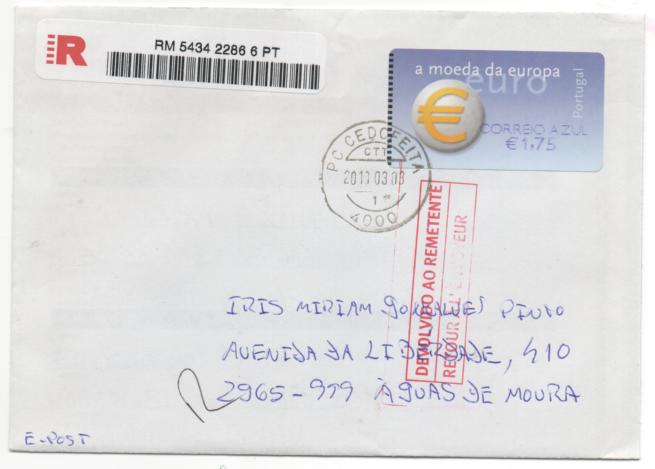 R RM 5434 2286 6 PT
a moeda da europa
euro
Portugal
CORREIO AZUL
€1,75
PC CEDOFEITA
CTT
03 03
4000
DEVOLVIDO AO REMETENTE
RETOUR À L'ENVOYEUR
IRIS MIRIAM GONÇALVES PINTO
AVENIDA DA LIBERDADE, 410
2965-999 ÀGUAS DE MOURA
E-POST